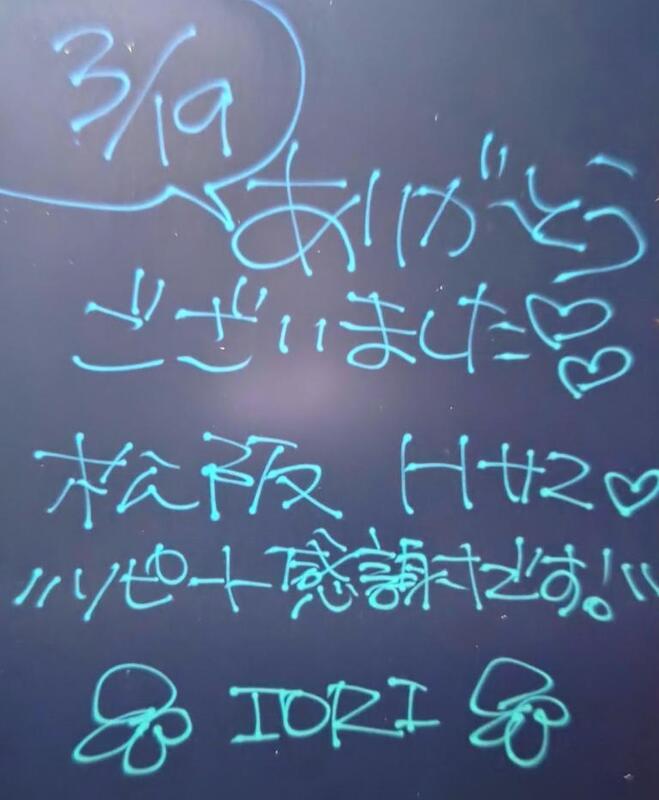 3/19
ありがとう
ございました♡♡
松阪 Hサマ♡
〃リピート感謝です!〃
IORI